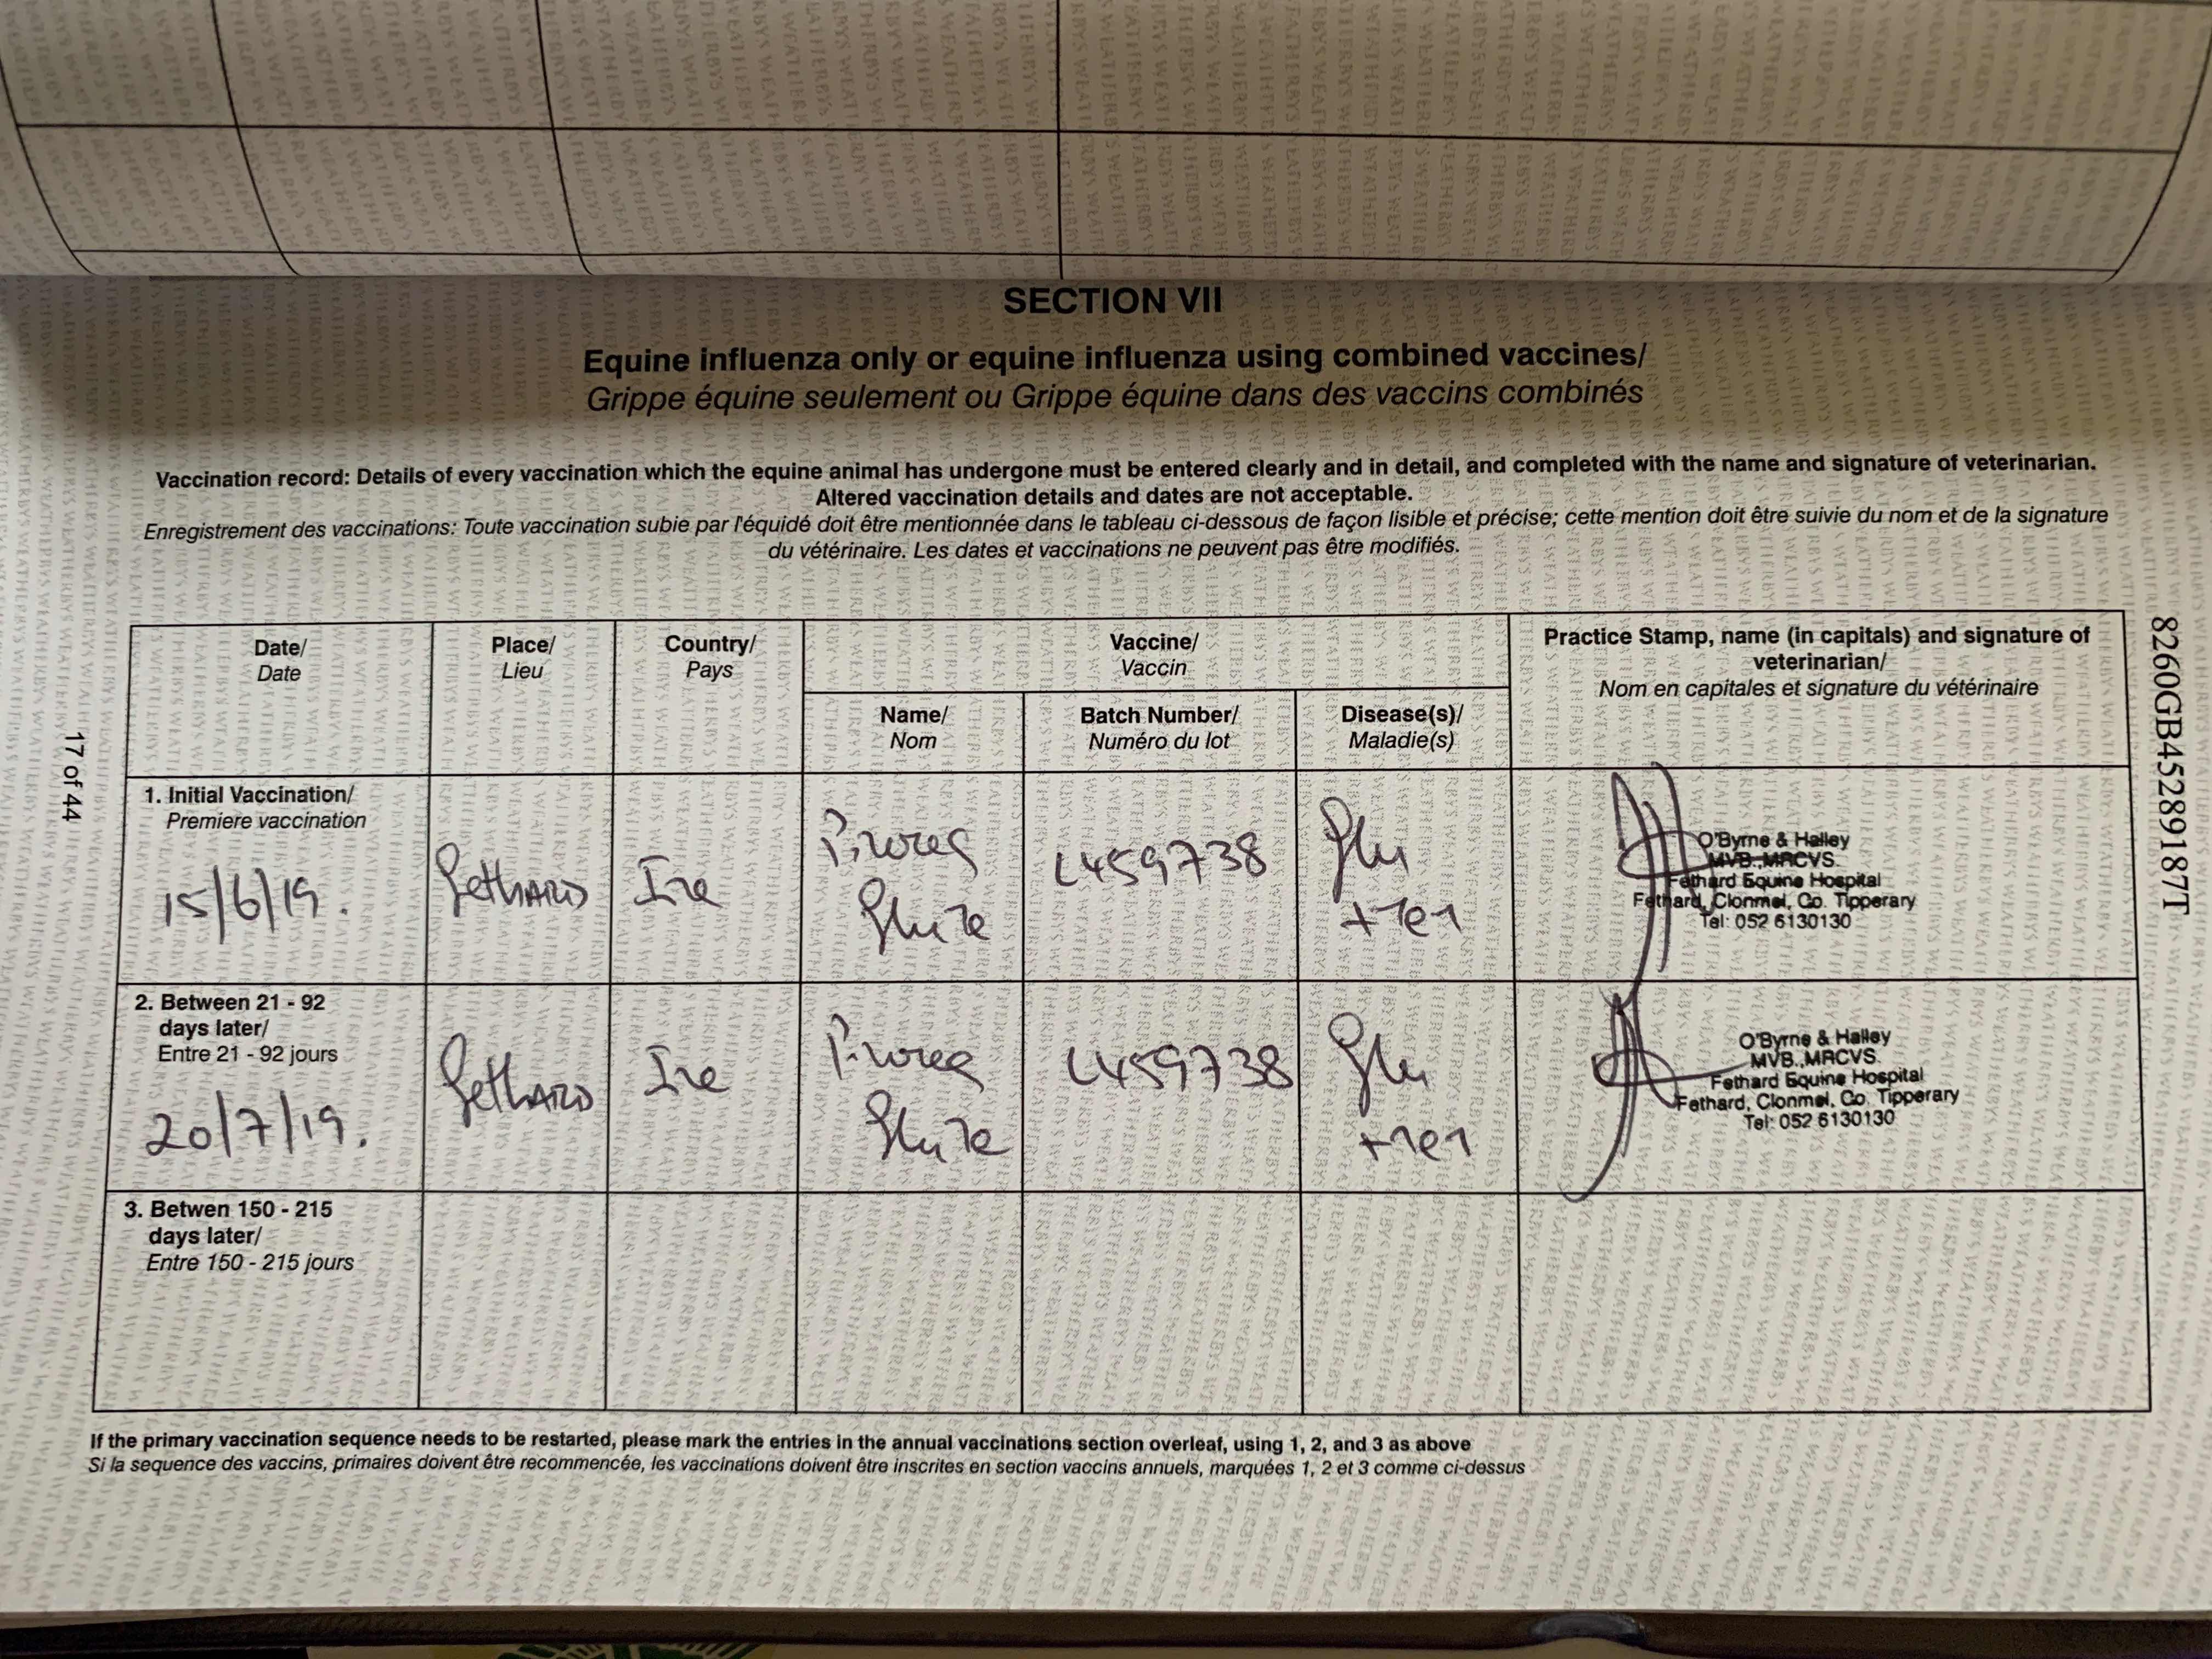 SECTION VII
Equine influenza only or equine influenza using combined vaccines/
Grippe équine seulement ou Grippe équine dans des vaccins combinés
Vaccination record: Details of every vaccination which the equine animal has undergone must be entered clearly and in detail, and completed with the name and signature of veterinarian.
Altered vaccination details and dates are not acceptable.
Enregistrement des vaccinations: Toute vaccination subie par l'équidé doit être mentionnée dans le tableau ci-dessous de façon lisible et précise; cette mention doit être suivie du nom et de la signature
du vétérinaire. Les dates et vaccinations ne peuvent pas être modifiés.
Date/
Date
Place/
Lieu
Country/
Pays
Vaccine/
Vaccin
Name/
Nom
Batch Number/
Numéro du lot
Disease(s)/
Maladie(s)
Practice Stamp, name (in capitals) and signature of
veterinarian/
Nom en capitales et signature du vétérinaire
1. Initial Vaccination/
Premiere vaccination
15/6/19.
Fethard
Ire
L459738
Flu
+ Tet
O'Byrne & Halley
MVB.,MRCVS.
Fethard Equine Hospital
Fethard, Clonmel, Co. Tipperary
Tel: 052 6130130
2. Between 21 - 92
days later/
Entre 21 - 92 jours
20/7/19.
Fethard
Ire
L459738
Flu
+ Tet
O'Byrne & Halley
MVB.,MRCVS.
Fethard Equine Hospital
Fethard, Clonmel, Co. Tipperary
Tel: 052 6130130
3. Betwen 150 - 215
days later/
Entre 150 - 215 jours
If the primary vaccination sequence needs to be restarted, please mark the entries in the annual vaccinations section overleaf, using 1, 2, and 3 as above
Si la sequence des vaccins, primaires doivent être recommencée, les vaccinations doivent être inscrites en section vaccins annuels, marquées 1, 2 et 3 comme ci-dessus
17 of 44
8260GB45289187T